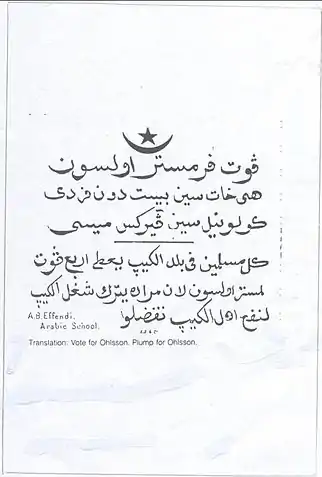 ڤوت فر مستر اولسون
هى خات سين بيست دون فر دى
كولونيل سين ڤيركس ميسى
كل مسلمين فى بلد الكيپ يعطى اربع ڤوت
لمستر اولسون لان مراده يترك شغل الكيپ
لنفع اهل الكيپ تفضلوا
A.B. Effendi.
Arabic School.
Translation: Vote for Ohlsson. Plump for Ohlsson.